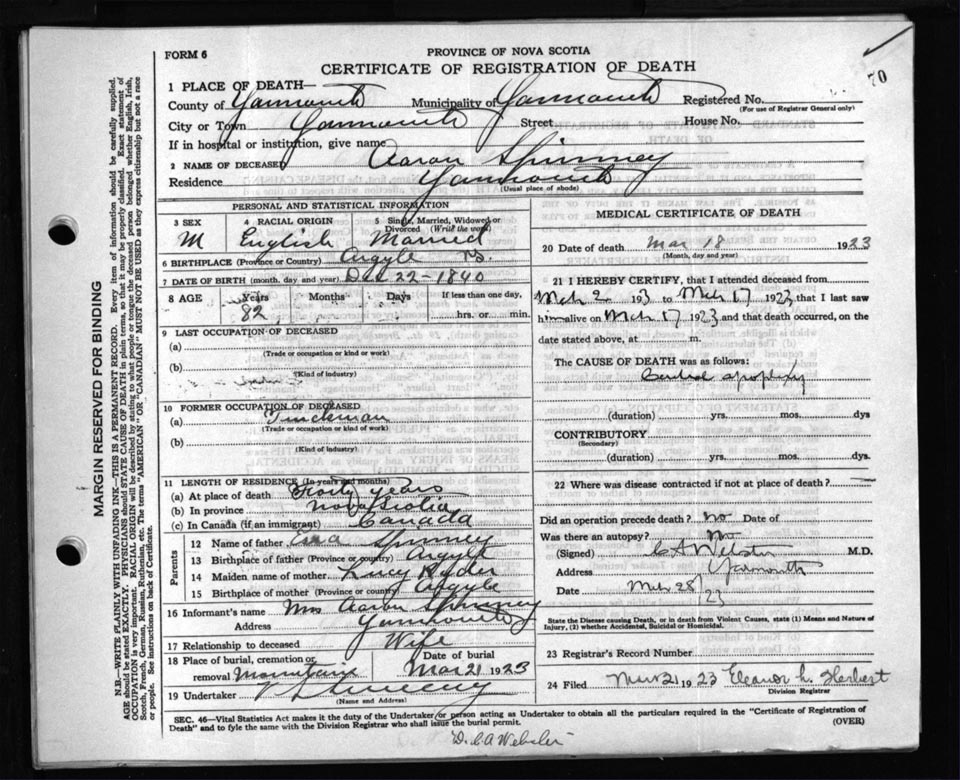 FORM 6
PROVINCE OF NOVA SCOTIA
CERTIFICATE OF REGISTRATION OF DEATH
70
1 PLACE OF DEATH—
County of Yarmouth Municipality of Yarmouth Registered No.
(For use of Registrar General only)
City or Town Yarmouth Street House No.
If in hospital or institution, give name
2 NAME OF DECEASED Aaron Spinney
Residence Yarmouth
(Usual place of abode)
PERSONAL AND STATISTICAL INFORMATION
3 SEX 4 RACIAL ORIGIN 5 Single, Married, Widowed or Divorced (Write the word)
M English Married
6 BIRTHPLACE (Province or Country) Argyle
7 DATE OF BIRTH (month, day and year) Dec 22-1840
8 AGE Years Months Days If less than one day,
82 hrs. or min.
9 LAST OCCUPATION OF DECEASED
(a)
(Trade or occupation or kind of work)
(b)
(Kind of industry)
10 FORMER OCCUPATION OF DECEASED
(a) Truckman
(Trade or occupation or kind of work)
(b)
(Kind of industry)
11 LENGTH OF RESIDENCE (In years and months)
(a) At place of death years
(b) In province Nova Scotia
(c) In Canada (if an immigrant) Canada
Parents
12 Name of father Spinney
13 Birthplace of father (Province or country) Argyle
14 Maiden name of mother Lucy Ryder
15 Birthplace of mother (Province or country) Argyle
16 Informant's name Mrs Aaron Spinney
Address Yarmouth
17 Relationship to deceased Wife
18 Place of burial, cremation or removal Date of burial
Mountain Mar 21 1923
19 Undertaker
(Name and Address)
MEDICAL CERTIFICATE OF DEATH
20 Date of death Mar 18 1923
(Month, day and year)
21 I HEREBY CERTIFY, that I attended deceased from
Mch 2 193 to Mch 17 1923 that I last saw
him alive on Mch 17 1923 and that death occurred, on the
date stated above, at m.
The CAUSE OF DEATH was as follows:
Cerebral apoplexy
(duration) yrs. mos. dys
CONTRIBUTORY
(Secondary)
(duration) yrs. mos. dys.
22 Where was disease contracted if not at place of death?
Did an operation precede death? No Date of
Was there an autopsy? No
(Signed) C A Webster M.D.
Address Yarmouth
Date Mch 28/23
State the Disease causing Death, or in death from Violent Causes, state (1) Means and Nature of Injury, (2) whether Accidental, Suicidal or Homicidal.
23 Registrar's Record Number
24 Filed Mar 21 1923 Eleanor L. Herbert
Division Registrar
SEC. 46—Vital Statistics Act makes it the duty of the Undertaker or person acting as Undertaker to obtain all the particulars required in the "Certificate of Registration of
Death" and to fyle the same with the Division Registrar who shall issue the burial permit. (OVER)
Dr. C A Webster
MARGIN RESERVED FOR BINDING
N.B.—WRITE PLAINLY WITH UNFADING INK—THIS IS A PERMANENT RECORD. Every item of information should be carefully supplied.
AGE should be stated EXACTLY. PHYSICIANS should STATE CAUSE OF DEATH in plain terms, so that it may be properly classified. Exact statement of
OCCUPATION is very important. RACIAL ORIGIN will be described by stating to what people or tongue the deceased person belonged, whether English, Irish,
Scotch, French, German, Russian, Ruthenian, etc. The terms "AMERICAN" OR "CANADIAN" MUST NOT BE USED as they express citizenship but not a race
or people. See instructions on back of Certificate.